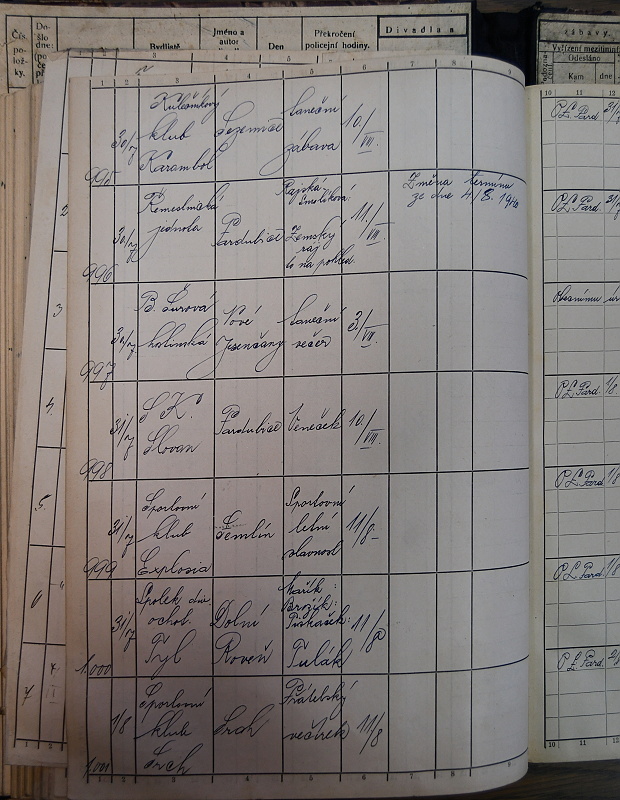 Čís. polož-ky.
Do-šlo dne:
Bydliště
Jméno a autor
Den
Překročení policejní hodiny.
Divadla a
zábavy.
Vyřízení mezitímní
Odesláno
Kam dne
1 2 3 4 5 6 7 8 9
10 11 12
995 30/7 Kulečníkový klub Karambol Sezemice taneční zábava 10./VIII.
P.Ř. Pard. 31/7
996 30/7 Řemeslnická jednota Pardubice Rajská Zemský ráj to na pohled 11./VIII. Změna termínu ze dne 4/8. 1940
P.Ř. Pard. 31/7
997 30/7 B. Šurová hostinská Nové Jesenčany taneční večer 3./VIII.
Obecnímu úř
998 31/7 S.K. Slovan Pardubice Věneček 10./VIII.
P.Ř. Pard. 1/8
999 31/7 Sportovní klub Explosia Semtín Sportovní letní slavnost 11/8
P.Ř. Pard. 1/8
1.000 31/7 Spolek div. ochot. Tyl Dolní Roveň Mařík Brožík: Piskáček: Tulák 11/8
P.Ř. Pard. 1/8
1.001 1/8 Sportovní klub Srch Srch Přátelský večírek 11/8
P.Ř. Pard. 2/8
2
3
4.
5.
6
7
1 2 3 4 5 6 7 8 9
10 11 12